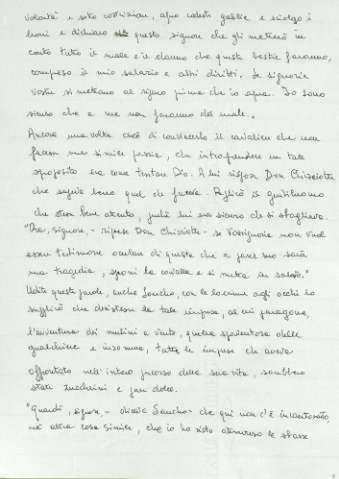 volontà e sotto costrizione, apro codeste gabbie e sciolgo i
leoni e dichiaro a questo signore che gli metterò in
conto tutto il male e il danno che queste bestie faranno,
compreso il mio salario e altri diritti. Le signorie
vostre si mettano al sicuro prima che io apra. Io sono
sicuro che a me non faranno del male.
Ancora una volta cercò di convincerlo il cavaliere che non
facesse una simile pazzia, che intraprendere un tale
sproposito era come tentare Dio. A lui rispose Don Chisciotte
che sapeva bene quel che faceva. Replicò il gentiluomo
che stesse bene attento, poiché lui era sicuro che si sbagliava.
"Ora, signore, - riprese Don Chisciotte - se Vossignoria non vuol
essere testimone oculare di questa che a parer suo sarà
una tragedia, sproni la cavalla e si metta in salvo."
Udite queste parole, anche Sancho, con le lacrime agli occhi lo
supplicò che desistesse da tale impresa, al cui paragone,
l'avventura dei mulini a vento, quella spaventosa delle
gualchiere e insomma, tutte le imprese che aveva
affrontato nell'intero percorso della sua vita, sarebbero
state zuccherini e pan dolce.
"Guardi, signore, - diceva Sancho - che qui non c'è incantesimo,
né altra cosa simile, che io ho visto attraverso le sbarre